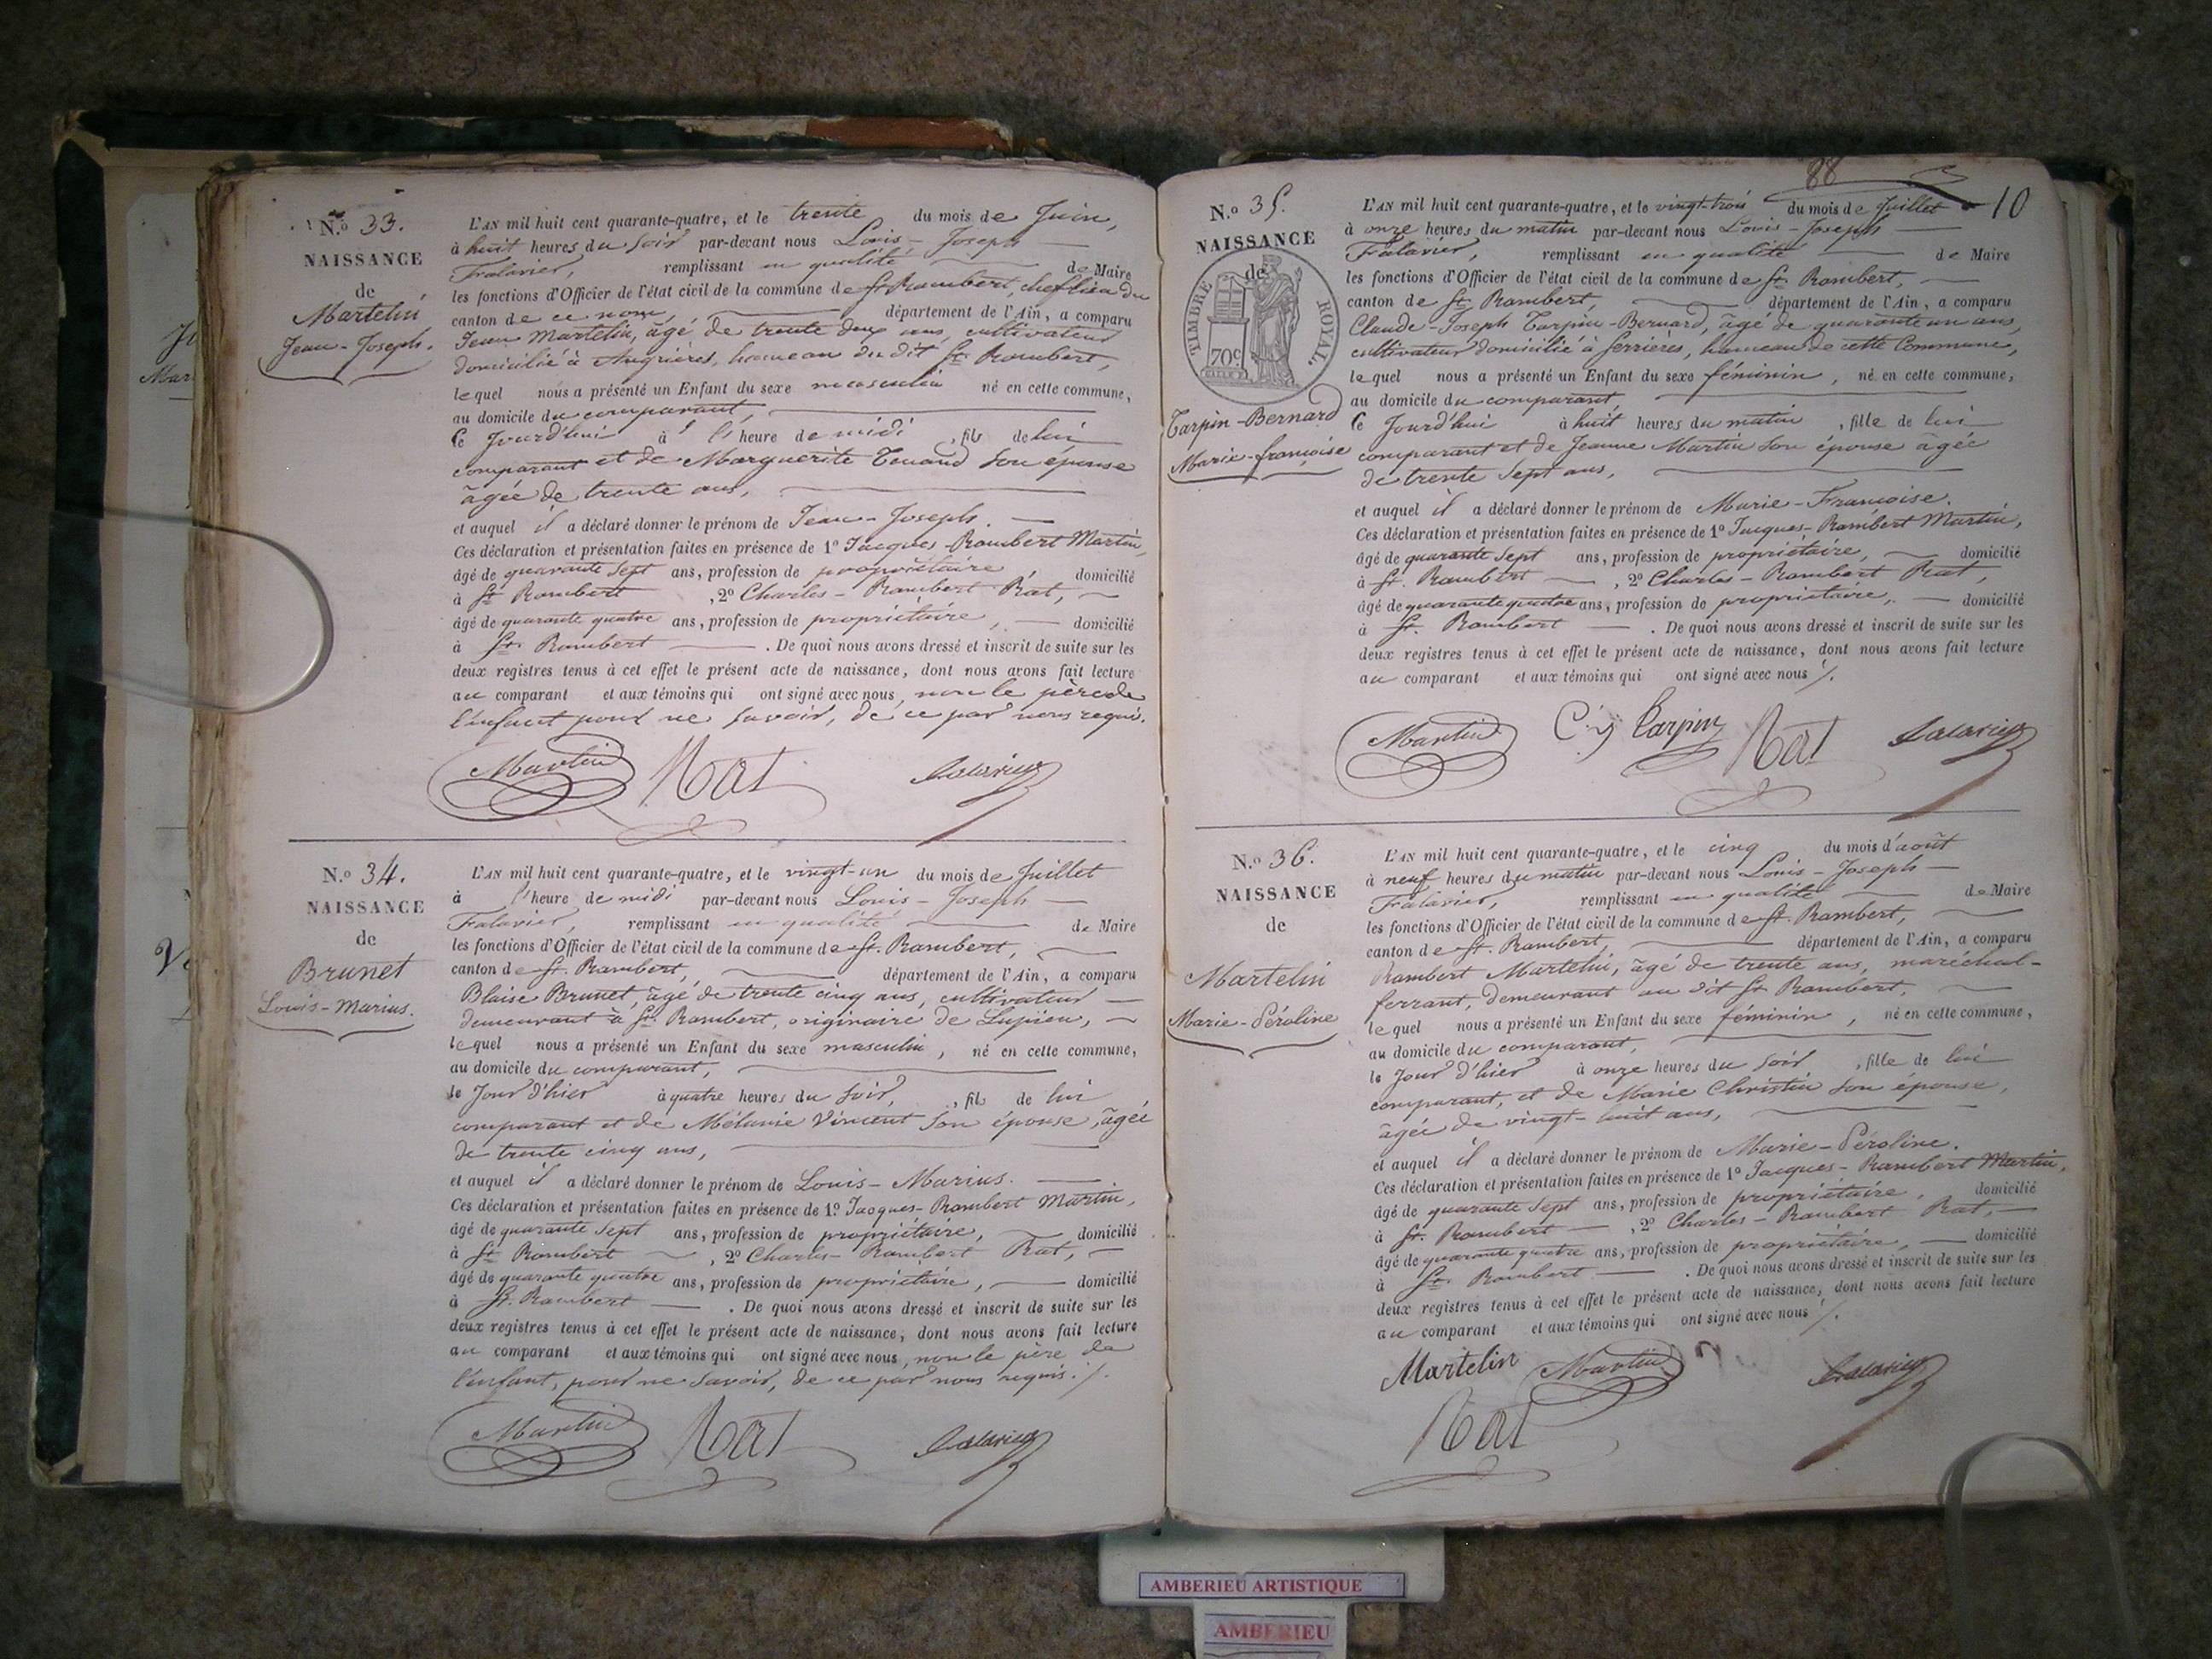 N.º 33.
NAISSANCE
de
Martelin
Jean-Joseph.
L'AN mil huit cent quarante-quatre, et le trente du mois de Juin,
à huit heures du soir par-devant nous Louis-Joseph
Falavier, remplissant en qualité de Maire
les fonctions d'Officier de l'état civil de la commune de St Rambert, chef lieu du
canton de ce nom, département de l'Ain, a comparu
Jean Martelin, âgé de trente deux ans, cultivateur
domicilié à Angrières, hameau du dit St Rambert,
lequel nous a présenté un Enfant du sexe masculin né en cette commune,
au domicile du comparant,
Ce Jourd'hui à l'heure de midi, fils de lui
comparant et de Marguerite Tenand son épouse
âgée de trente ans,
et auquel il a déclaré donner le prénom de Jean-Joseph.
Ces déclaration et présentation faites en présence de 1º Jacques-Rambert Martin,
âgé de quarante sept ans, profession de propriétaire, domicilié
à St Rambert, 2º Charles-Rambert Rat,
âgé de quarante quatre ans, profession de propriétaire, domicilié
à St. Rambert. De quoi nous avons dressé et inscrit de suite sur les
deux registres tenus à cet effet le présent acte de naissance, dont nous avons fait lecture
au comparant et aux témoins qui ont signé avec nous, non le père de
l'enfant pour ne savoir, de ce par nous requis.
Martin Rat Falavier
N.º 34.
NAISSANCE
de
Brunet
Louis-Marius.
L'AN mil huit cent quarante-quatre, et le vingt-un du mois de Juillet
à l'heure de midi par-devant nous Louis-Joseph
Falavier, remplissant en qualité de Maire
les fonctions d'Officier de l'état civil de la commune de St. Rambert,
canton de St. Rambert, département de l'Ain, a comparu
Blaise Brunet, âgé de trente cinq ans, cultivateur
demeurant à St. Rambert, originaire de Lupieu,
lequel nous a présenté un Enfant du sexe masculin, né en cette commune,
au domicile du comparant,
le Jour d'hier à quatre heures du soir, fils de lui
comparant et de Mélanie Vincent son épouse, âgée
de trente cinq ans,
et auquel il a déclaré donner le prénom de Louis-Marius.
Ces déclaration et présentation faites en présence de 1º Jacques-Rambert Martin,
âgé de quarante sept ans, profession de propriétaire, domicilié
à St. Rambert, 2º Charles-Rambert Rat,
âgé de quarante quatre ans, profession de propriétaire, domicilié
à St. Rambert. De quoi nous avons dressé et inscrit de suite sur les
deux registres tenus à cet effet le présent acte de naissance, dont nous avons fait lecture
au comparant et aux témoins qui ont signé avec nous, non le père de
l'enfant, pour ne savoir, de ce par nous requis ./.
Martin Rat Falavier
88
10
N.º 35.
NAISSANCE
de
TIMBRE ROYAL.
70c
Tarpin-Bernard
Marie-françoise
L'AN mil huit cent quarante-quatre, et le vingt-trois du mois de Juillet
à onze heures du matin par-devant nous Louis-Joseph
Falavier, remplissant en qualité de Maire
les fonctions d'Officier de l'état civil de la commune de St. Rambert,
canton de St. Rambert, département de l'Ain, a comparu
Claude-Joseph Tarpin-Bernard, âgé de quarante un ans,
cultivateur domicilié à serrières, hameau de cette Commune,
lequel nous a présenté un Enfant du sexe féminin, né en cette commune,
au domicile du comparant,
Ce Jourd'hui à huit heures du matin, fille de lui
comparant et de Jeanne Martin son épouse âgée
de trente sept ans,
et auquel il a déclaré donner le prénom de Marie-Françoise.
Ces déclaration et présentation faites en présence de 1º Jacques-Rambert Martin,
âgé de quarante sept ans, profession de propriétaire, domicilié
à St. Rambert, 2º Charles-Rambert Rat,
âgé de quarante quatre ans, profession de propriétaire, domicilié
à St. Rambert. De quoi nous avons dressé et inscrit de suite sur les
deux registres tenus à cet effet le présent acte de naissance, dont nous avons fait lecture
au comparant et aux témoins qui ont signé avec nous ./.
Martin C. j Tarpin Rat Falavier
N.º 36.
NAISSANCE
de
Martelin
Marie-Péroline
L'AN mil huit cent quarante-quatre, et le cinq du mois d'août
à neuf heures du matin par-devant nous Louis-Joseph
Falavier, remplissant en qualité de Maire
les fonctions d'Officier de l'état civil de la commune de St. Rambert,
canton de St. Rambert, département de l'Ain, a comparu
Rambert Martelin, âgé de trente ans, maréchal-
ferrant, demeurant au dit St Rambert,
lequel nous a présenté un Enfant du sexe féminin, né en cette commune,
au domicile du comparant,
le Jour d'hier à onze heures du soir, fille de lui
comparant, et de Marie Christin son épouse,
âgée de vingt-huit ans,
et auquel il a déclaré donner le prénom de Marie-Péroline.
Ces déclaration et présentation faites en présence de 1º Jacques-Rambert Martin,
âgé de quarante sept ans, profession de propriétaire, domicilié
à St. Rambert, 2º Charles-Rambert Rat,
âgé de quarante quatre ans, profession de propriétaire, domicilié
à St. Rambert. De quoi nous avons dressé et inscrit de suite sur les
deux registres tenus à cet effet le présent acte de naissance, dont nous avons fait lecture
au comparant et aux témoins qui ont signé avec nous ./.
Martelin Martin Falavier
Rat
AMBERIEU ARTISTIQUE
AMBERIEU